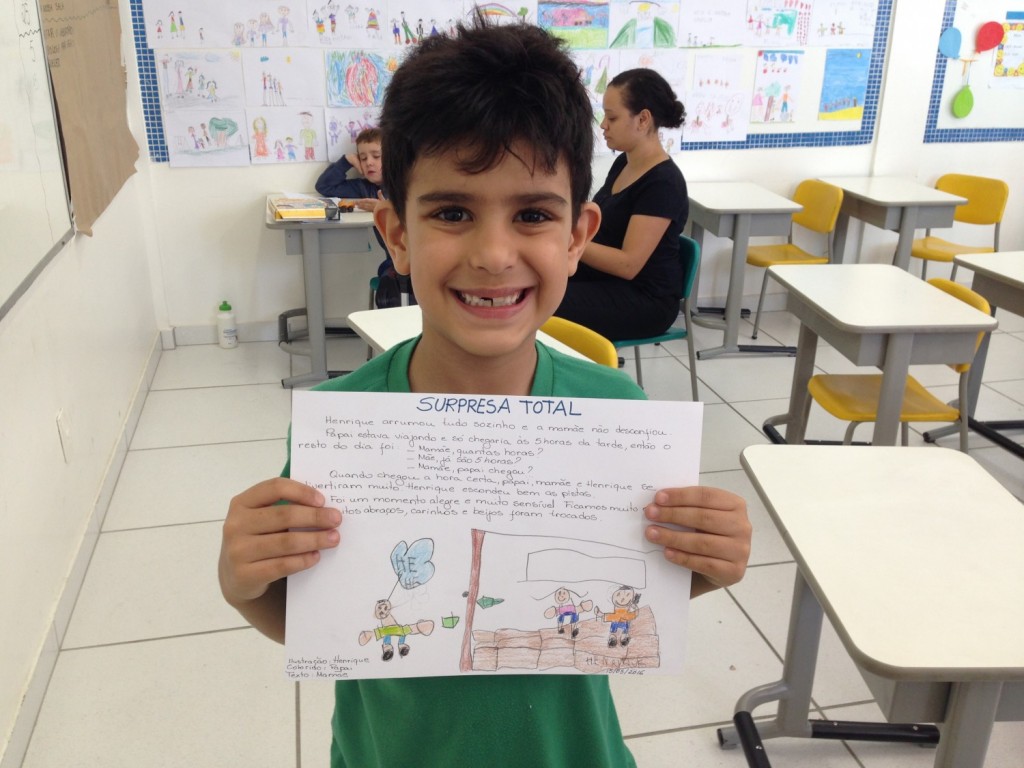 SURPRESA TOTAL
Henrique arrumou tudo sozinho e a mamãe não desconfiou.
Papai estava viajando e só chegaria às 5 horas da tarde, então o
resto do dia foi: - Mamãe, quantas horas?
- Mãe, já são 5 horas?
- Mamãe, papai chegou?
Quando chegou a hora certa, papai, mamãe e Henrique se
divertiram muito. Henrique escondeu bem as pistas.
Foi um momento alegre e muito sensível. Ficamos muito
abraços, carinhos e beijos foram trocados.
HE
HE
Ilustração: Henrique
Colorido: Papai
Texto: Mamãe